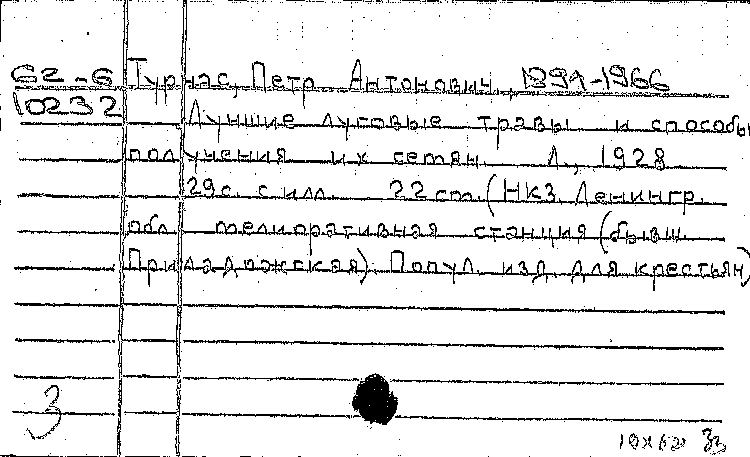 62-6 Турнас, Петр Антонович, 1891-1966
10232 Лучшие луговые травы и способы
получения их семян. Л., 1928
29с. с илл. 22 cm. (НКЗ. Ленингр.
обл. мелиоративная станция (бывш.
Приладожская). Попул. изд. для крестьян)
3